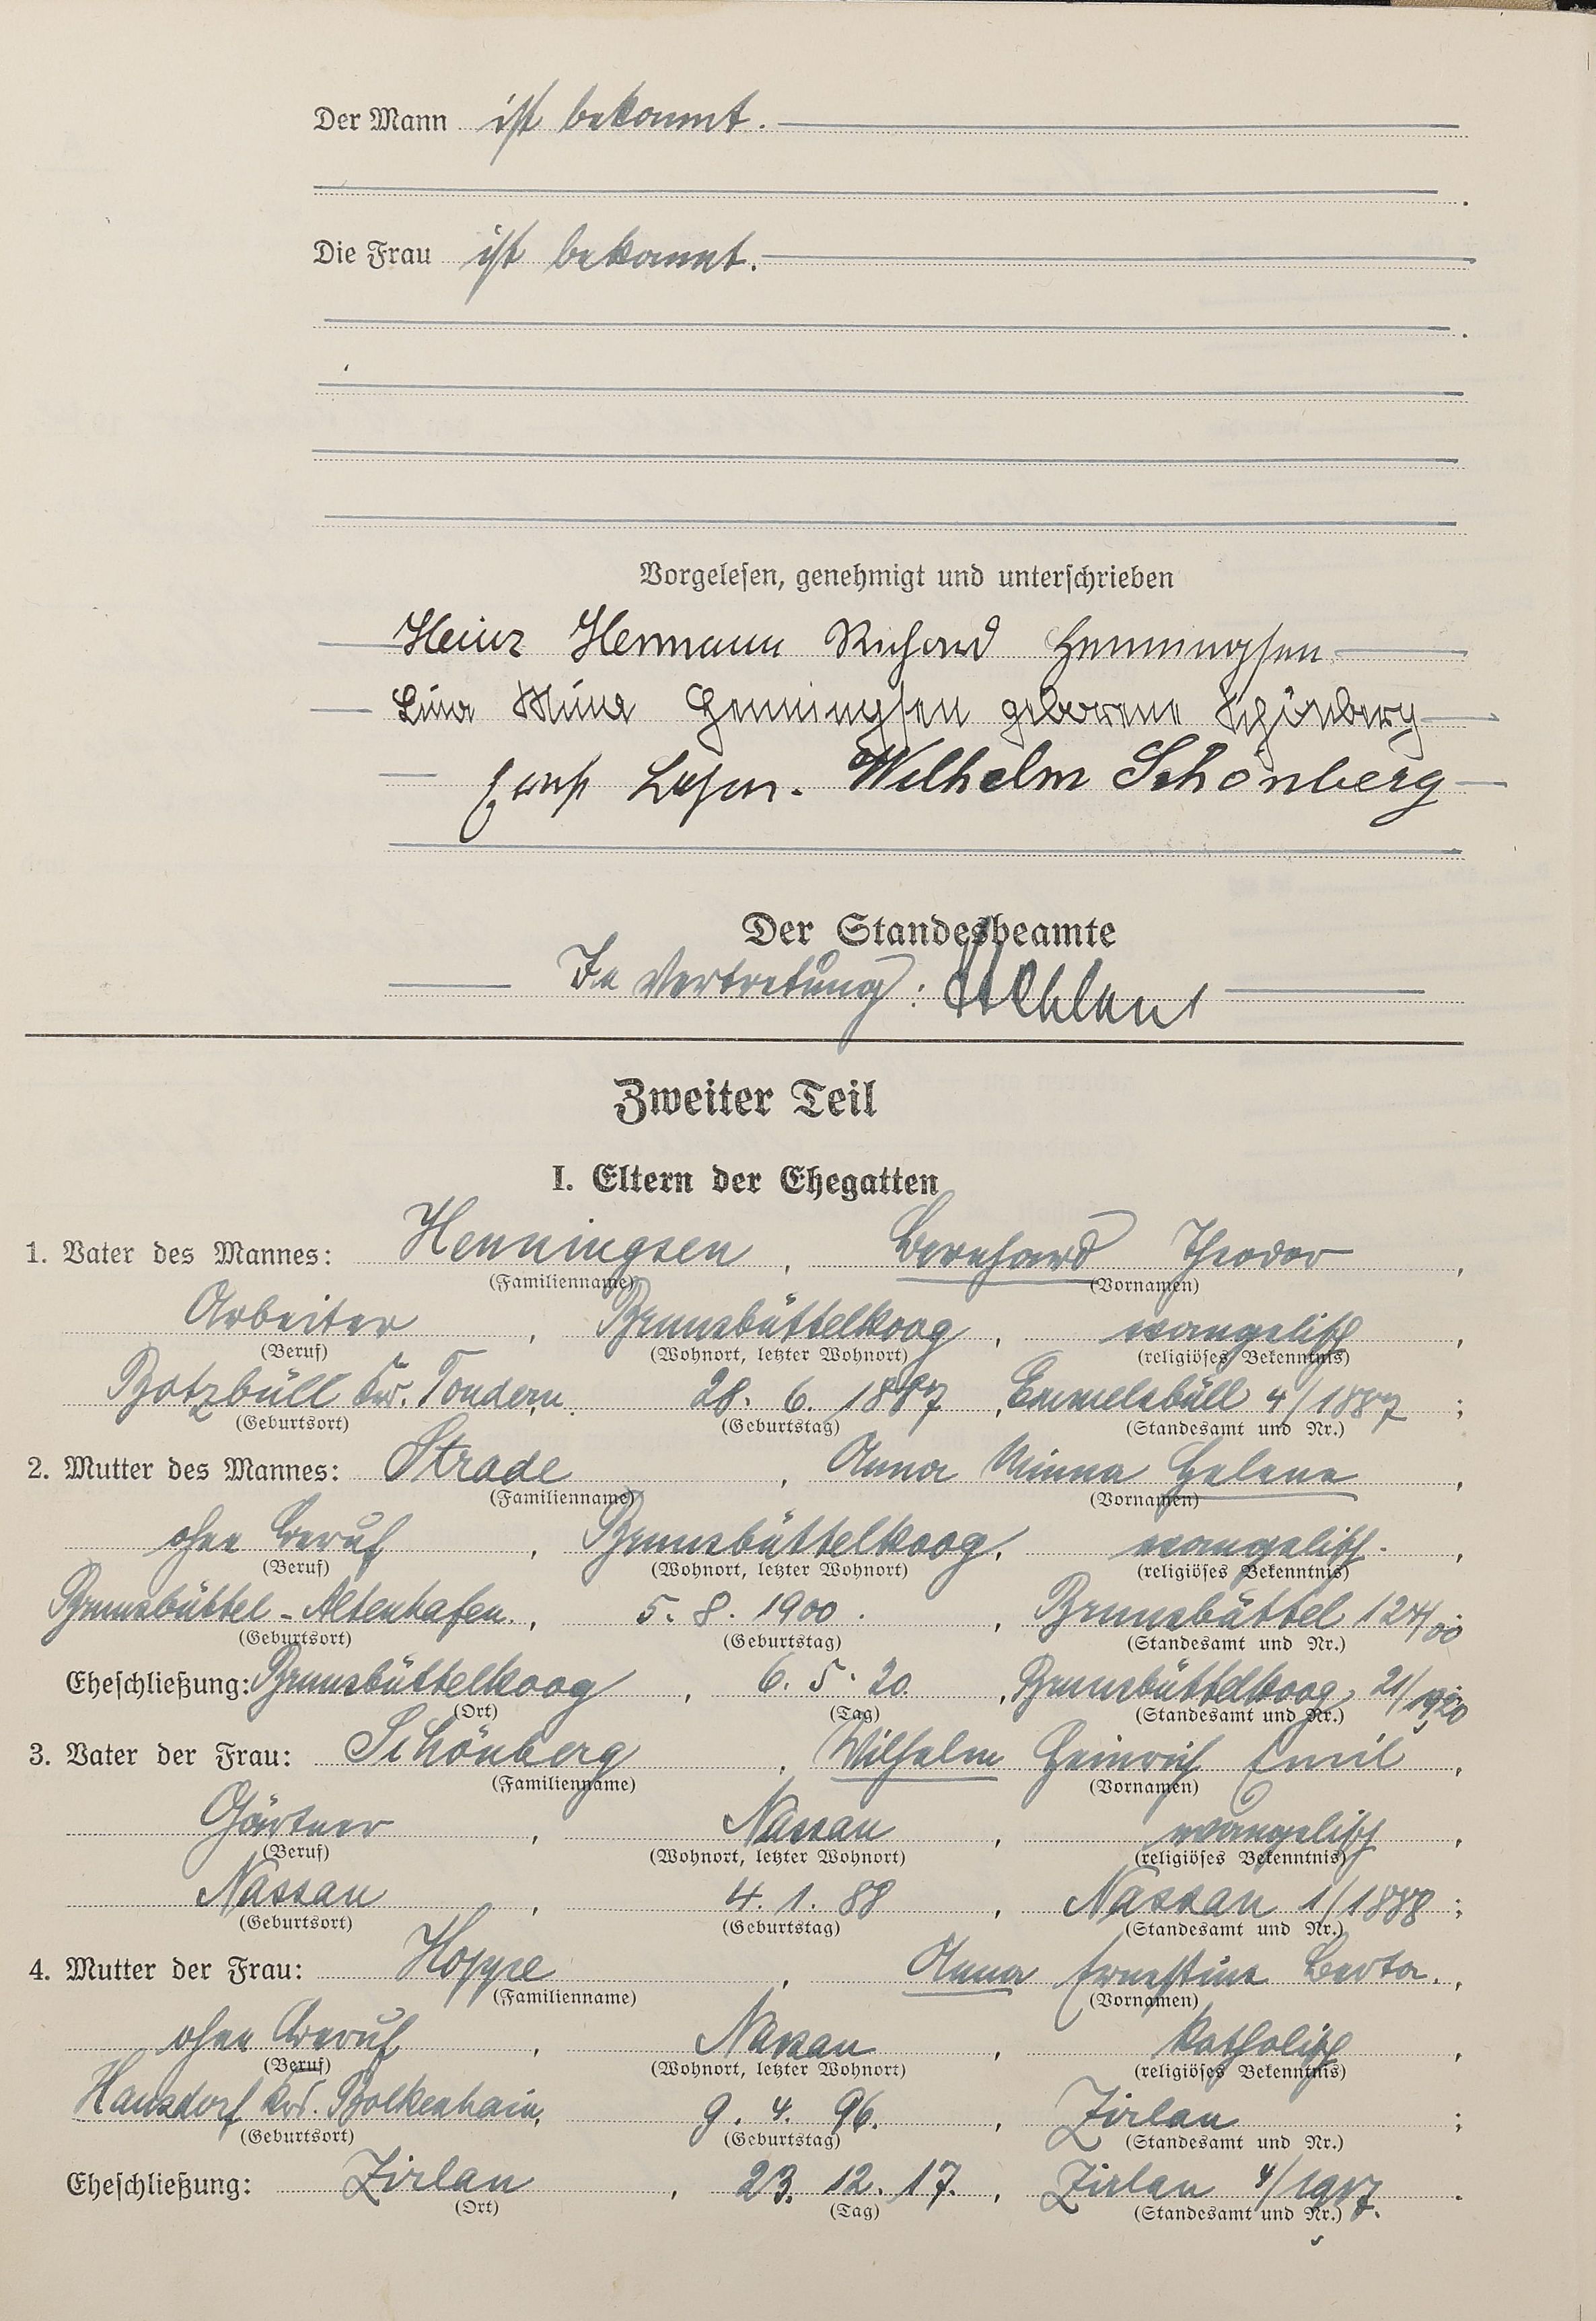 Der Mann ist bekannt.
Die Frau ist bekannt.
Vorgelesen, genehmigt und unterschrieben
Heinz Hermann Richard Henningsen
Lina Minna Henningsen geborene Schönberg
Ernst Wilhelm Schönberg
Der Standesbeamte
In Vertretung:
Zweiter Teil
I. Eltern der Ehegatten
1. Vater des Mannes: Henningsen, Bernhard Theodor,
(Familienname) (Vornamen)
Arbeiter, Brunsbüttelkoog, evangelisch,
(Beruf) (Wohnort, letzter Wohnort) (religiöses Bekenntnis)
Botzbüll Kr. Tondern, 28. 6. 1887, Emmelsbüll 4/1887;
(Geburtsort) (Geburtstag) (Standesamt und Nr.)
2. Mutter des Mannes: Strade, Anna Minna Helene,
(Familienname) (Vornamen)
ohne Beruf, Brunsbüttelkoog, evangelisch.,
(Beruf) (Wohnort, letzter Wohnort) (religiöses Bekenntnis)
Brunsbüttel-Altenhafen., 5. 8. 1900., Brunsbüttel 124/00;
(Geburtsort) (Geburtstag) (Standesamt und Nr.)
Eheschließung: Brunsbüttelkoog, 6. 5. 20., Brunsbüttelkoog, 21/1920
(Ort) (Tag) (Standesamt und Nr.)
3. Vater der Frau: Schönberg, Wilhelm Heinrich Emil,
(Familienname) (Vornamen)
Gärtner, Nassau, evangelisch,
(Beruf) (Wohnort, letzter Wohnort) (religiöses Bekenntnis)
Nassau, 4. 1. 88, Nassau 1/1888;
(Geburtsort) (Geburtstag) (Standesamt und Nr.)
4. Mutter der Frau: Hoppe, Anna Ernestine Berta.,
(Familienname) (Vornamen)
ohne Beruf, Nassau, katholisch,
(Beruf) (Wohnort, letzter Wohnort) (religiöses Bekenntnis)
Hausdorf Krs. Bolkenhain, 9. 4. 96., Zirlau;
(Geburtsort) (Geburtstag) (Standesamt und Nr.)
Eheschließung: Zirlau, 23. 12. 17., Zirlau 4/1917.
(Ort) (Tag) (Standesamt und Nr.)